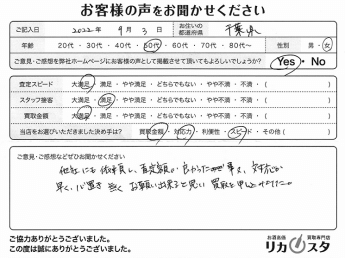 お客様の声をお聞かせください
ご記入日 2022年 9月 3日 お住いの都道府県 千葉県
年齢 20代・30代・40代・50代・60代・70代・80代〜 性別 男・女
ご意見・ご感想を弊社ホームページにお客様の声として掲載させて頂いてもよろしいでしょうか? Yes・No
査定スピード 大満足・満足・やや満足・どちらでもない・やや不満・不満・( )
スタッフ接客 大満足・満足・やや満足・どちらでもない・やや不満・不満・( )
買取金額 大満足・満足・やや満足・どちらでもない・やや不満・不満・( )
当店をお選びいただきました決め手は? 買取金額・対応力・利便性・スピード・その他( )
ご意見・ご感想などぜひお聞かせください
他社にも依頼し、査定額が良かったので事え、対応が
早く、心置き無くお願い出来ると思い買取を申し込みました。
ご協力ありがとうございました。
この度は誠にありがとうございました。
お酒高価買取専門店
リカスタ